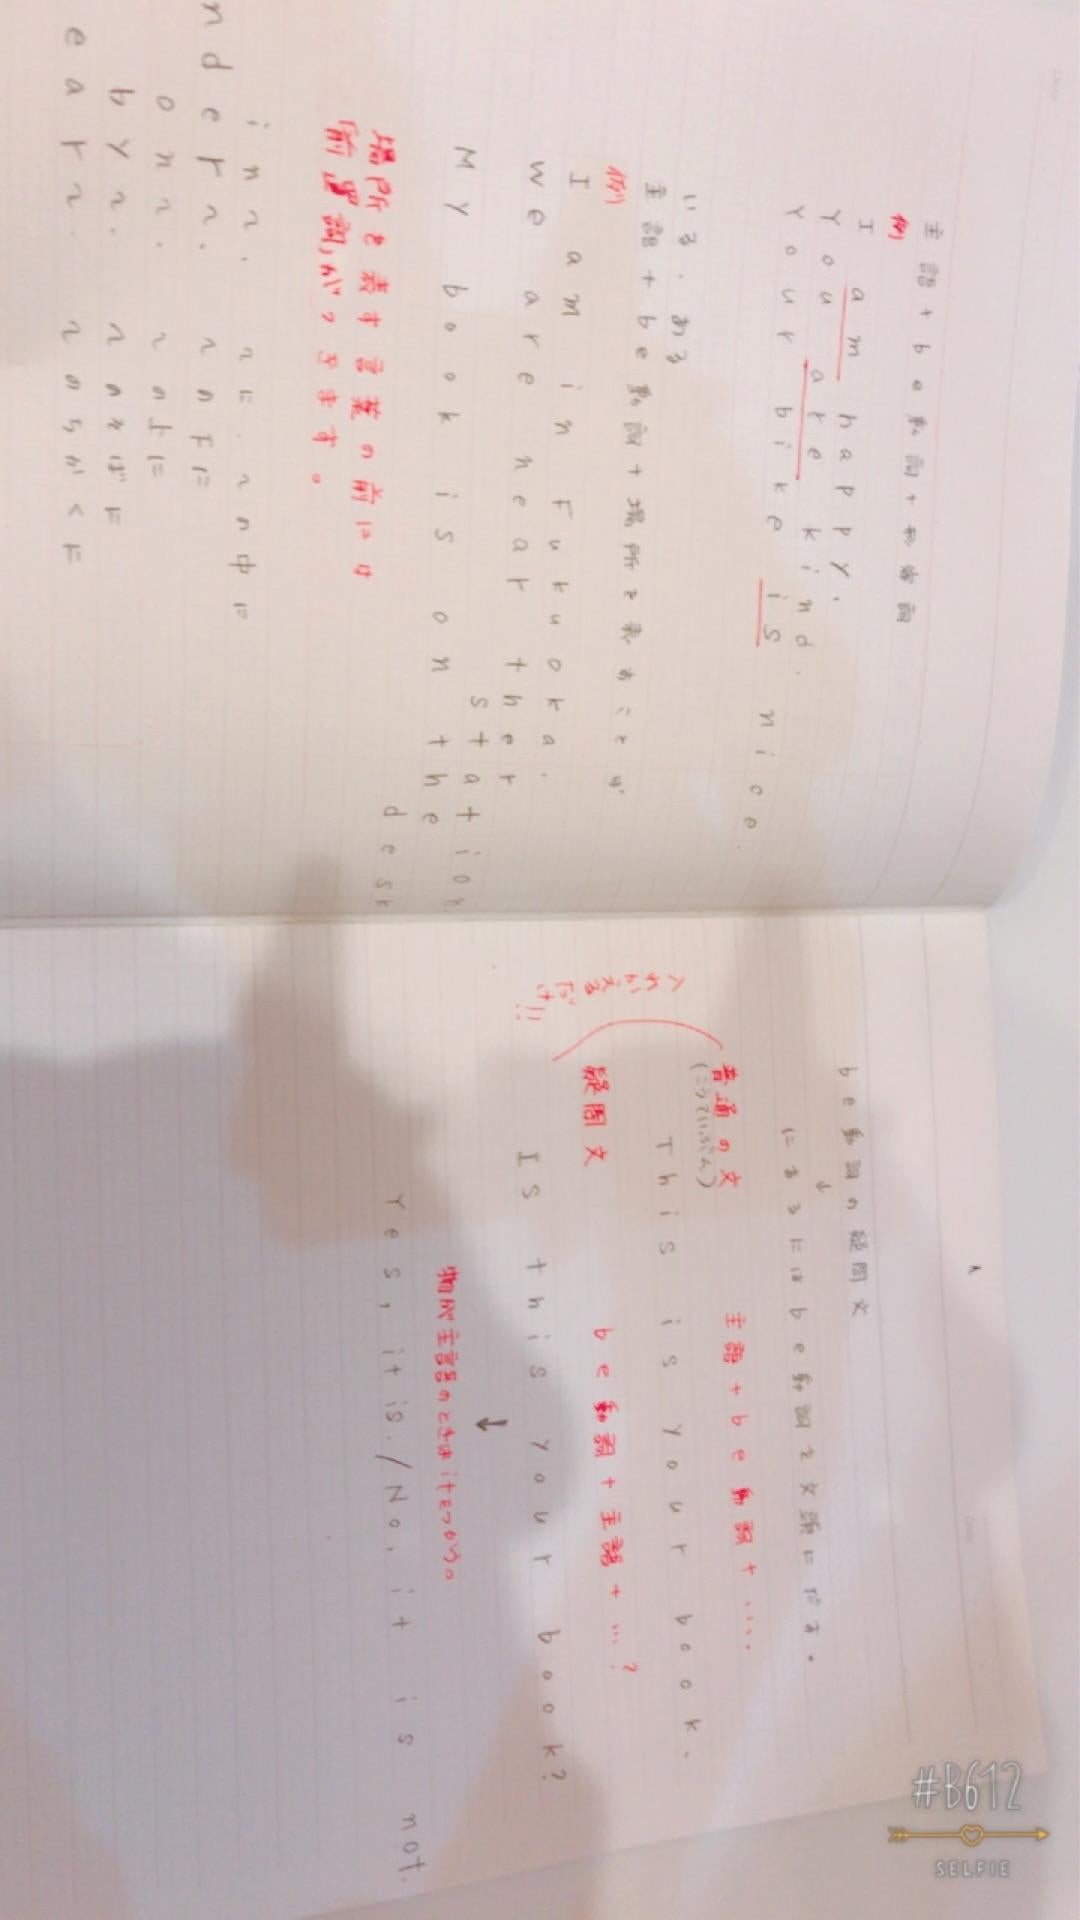 主語+be動詞+形容詞
例
I am happy.
You are kind.
Your bike is nice.
いる・ある
主語+be動詞+場所を表すことば
例
I am in Fukuoka.
We are near ther
station.
My book is on the
desk
場所を表す言葉の前には
「前置詞」がつきます。
in~. ~に.~の中に
nder~. ~の下に
on~. ~の上に
by~. ~のそばに
ear~. ~のちかくに
be動詞の疑問文
↓
にするにはbe動詞を文頭にだす。
普通の文 主語+be動詞+....
(こうていぶん)
This is your book.
入れかえる
だけ!!
疑問文 be動詞+主語+...?
Is this your book?
↓
物が主語のときはitをつかう。
Yes, it is./No, it is not.
#B612
SELFIE